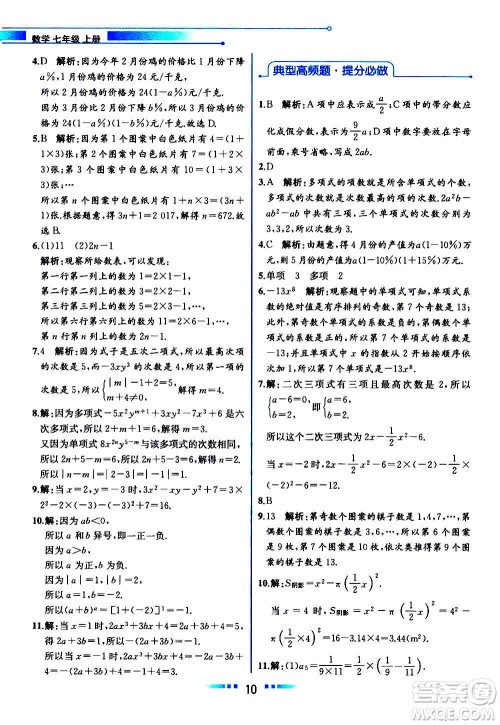 数学 七年级 上册
4.D 解析:因为今年2月份鸡的价格比1月份下降
a%,1月份鸡的价格为24元/千克,
所以2月份鸡的价格为24(1-a%)元/千克.
因为3月份比2月份下降b%,
所以3月份鸡的价格为24(1-a%)(1-b%)元/千克.故选D.
5.B 解析:因为第1个图案中白色纸片有4=(1+1×3)张;第2个图案中白色纸片有7=(1+2×3)张;第3个图案中白色纸片有10=(1+3×3)张;…
所以第n个图案中白色纸片有1+n×3=(3n+1)张.根据题意,得3n+1=2 017,解得n=672.故选B.
6.(1)11 (2)2n-1
解析:观察所给数表,可得
第一行第一列上的数为1=2×1-1,
第二行第二列上的数为3=2×2-1,
第三行第三列上的数为5=2×3-1,…
所以第n行第n列上的数为2n-1.
7.4 解析:因为式子是五次二项式,
所以{|m|-1=5-2, m+4≠0.
所以{|m|=4, m≠-4.
所以m=4.
8.解:因为多项式-5x²yᵐ⁺¹+xy²-3x³-6是六次多项式,所以2+m+1=6.所以m=3.
又因为单项式8x²ⁿy⁵⁻ᵐ与该多项式的次数相同,
所以2n+5-m=6,即2n=6-5+3=4.解得n=2.
9.解:当x=-2,y=3时,3x²-x²-7=2x²-7=2×(-2)²-7=1.
10.解:因为ab<0,
所以a和b异号,即一正一负.
因为a>b,
所以a>0.
所以a b=[1+(-2)]×(-2)=2.
11.解:当x=1时,2ax³+3bx+4=2a+3b+4=5,
得2a+3b=1.
所以当x=-1时,2ax³+3bx+4=-2a-3b+4=-(2a+3b)+4=-1+4=3.
典型高频题·提分必做
1.B 解析:A项中应表示成a/2;C项中的带分数应化成假分数,表示为9/2 a;D项中的数字要写在字母的前面,应写成2ab.
2.D
3.A 解析:多项式的项数就是所含单项式的个数,多项式的次数是最高次项的次数,所以多项式2a²b-ab²-ab的项数及次数分别是3,3.
4.C 解析:由题意,得4月份的产值为a(1-10%)万元,5月份的产值为a(1-10%)(1+15%)万元.
5.单项 3 多项 2
6.-13x⁸ 解析:观察题中的单项式可知,单项式系数的绝对值是有序排列的奇数,第7个奇数是13;第奇数个单项式的系数是负的,第偶数个单项式的系数是正的,所以第7个单项式的系数是-13;第1个单项式中x的指数是2,以后依次大1,故第7个单项式中x的指数是8.
7.解:二次三项式有三项且最高次数是二次,
所以{a-6=0, b=2, 即{a=6, b=2.
所以这个二次三项式为-x²+x-1.
当x=1/2时,原式=-1/4+1/2-1=-3/4.
8.B
9.13 解析:第奇数个图案的棋子数是1,4,7,10,…;第偶数个图案的棋子数是6,9,12,15,….因为第1,3,5,7,9个图案的棋子数依次是1,4,7,10,13,所以依次类推第9个图案的棋子数是13.
10.解:S阴影=x²-π(x/2)².
当x=4时,S阴影=x²-π(x/2)²≈4²-3.14×(4/2)²=16-3.14×4=3.44(m²).
11.解:(1)a₅=1/(9×11)=1/2×(1/9-1/11).
10